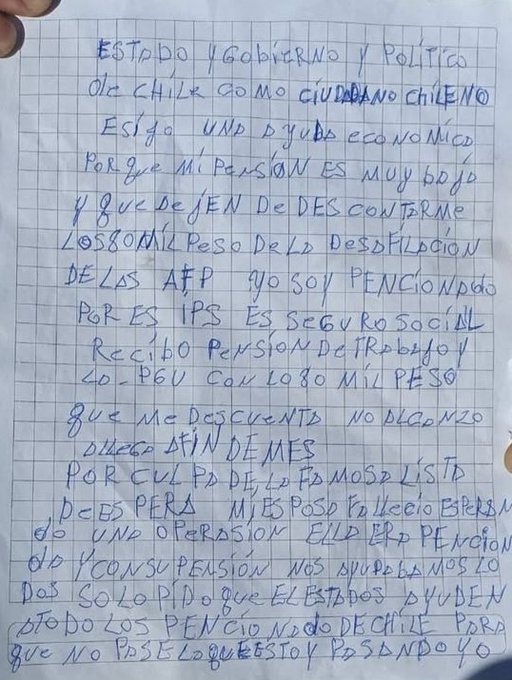 ESTADO Y GobiERNO Y POLÍTICO
de CHILE COMO CIUDADANO CHILENO
ESIJO UNA AYUDA ECONOMICA
PORque Mi PENSION ES MUY BAJA
Y que DEJEN De DESCONTARME
LOS80MIL PeSO DE LA DESAFILACIÓN
DE LAS AFP YO SOY PENCIONAdo
POR ES IPS ES SEGURO SOCIAL
ReCIBO PENSION De TRABAJO Y
LA-PGU CON LO80 MIL PESO
que Me DESCUENTA NO ALCANZO
ALLEGA AFIN DE MES
POR CULPA DE LA FAMOSA LISTA
DE ESPERA MI ESPOSA FALLECIO ESPERAN
do UNA OPERASION ELLA ERA PENCION
da Y CON SU PENSIÓN NOS AYUDABAMOS LO
DOS SOLO PIDO que EL ESTADOS AYUDEN
ATODO LOS PENCIONAdo DE CHILE PARA
que NO PASE LO que ESTOY PASANDO YO